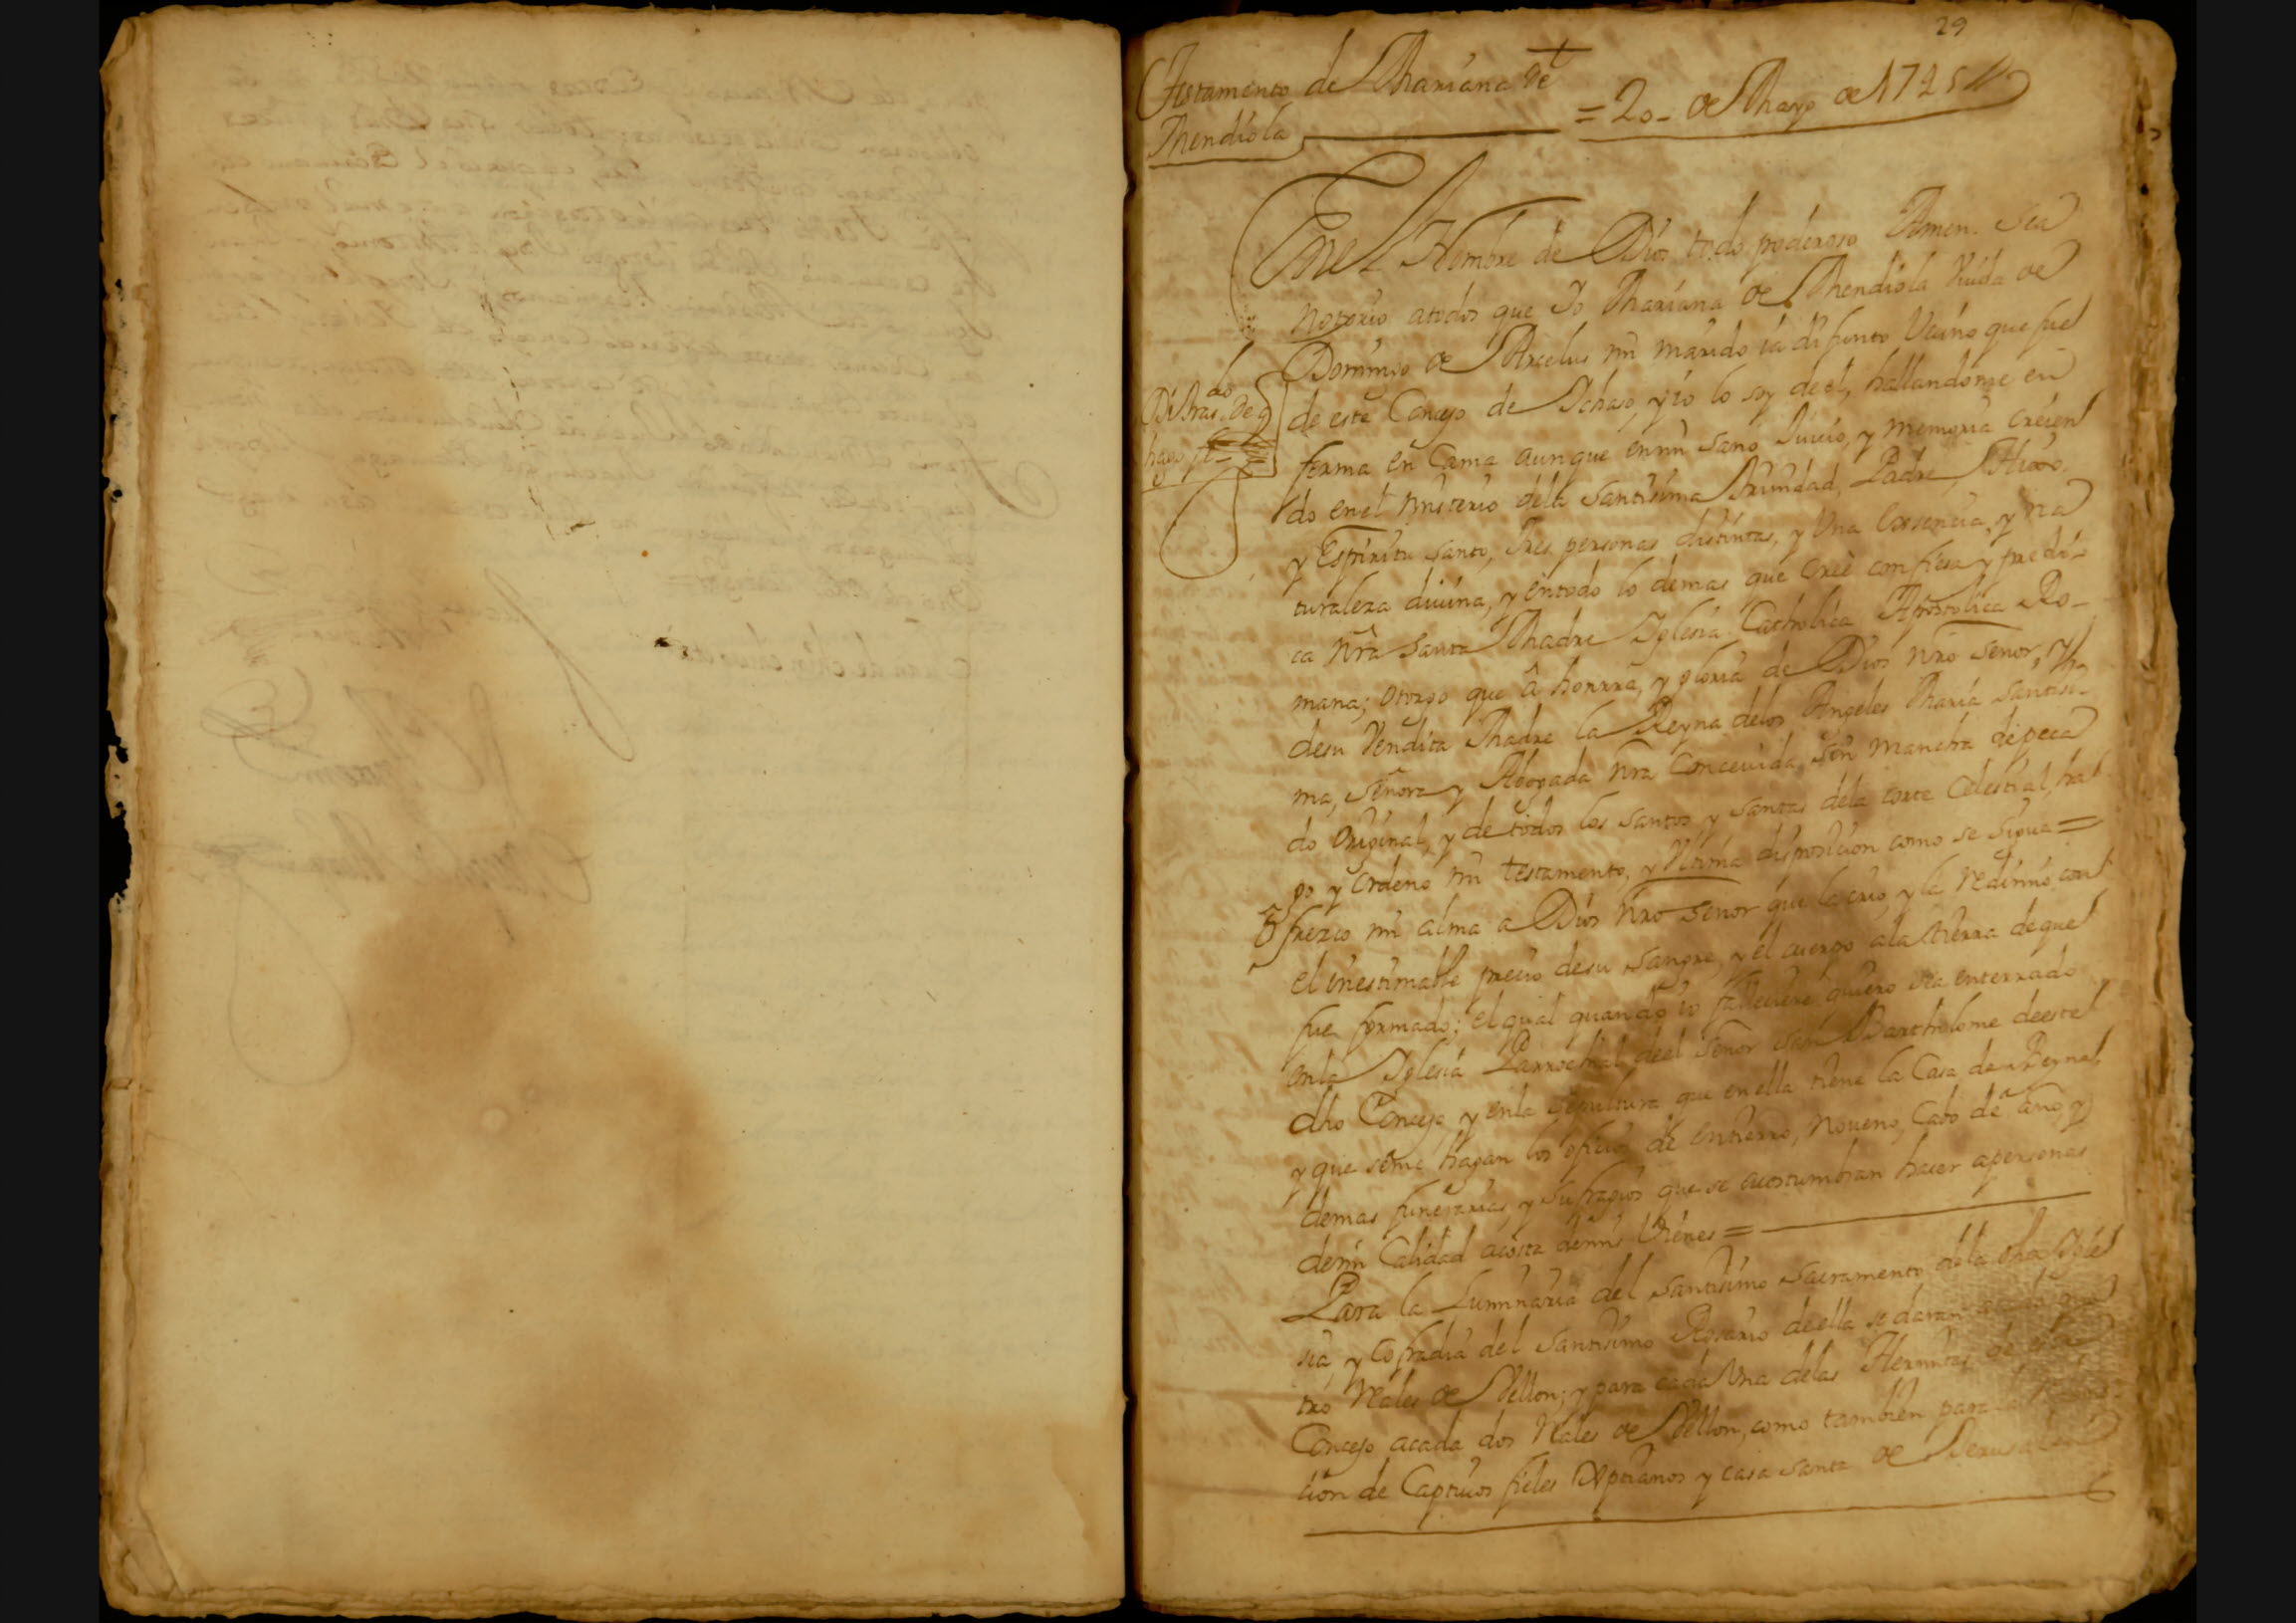 29
Testamento de Mariana de
Mendiola
= 20 - de Mayo de 1725
En el Nombre de Dios todo poderoso Amen. Sea
notorio atodos que Io Mariana de Mendiola Viuda de
Domingo de Arcelus mi marido ia difunto Vecino que fue
de este Concejo de Ichaso, y io lo soy de el, hallandome en
ferma en Cama aunque en mi sano Juicio, y memoria creien
do en el misterio dela Santisima Trinidad, Padre, Hijo
y Espiritu Santo, Tres personas distintas, y Una Essencia, y na
turaleza divina, y en todo lo demas que Cree confiesa y predi-
ca nra Santa Madre Iglesia Catholica Apostolica Ro-
mana; otorgo que â honrra, y gloria de Dios nro Señor, y
desu Vendita Madre la Reyna delos Angeles Maria Santisi-
ma, Señora y Abogada nra Conceuida sin mancha de peca
do Original, y de todos los Santos y Santas dela corte Celestial, ha
go y Ordeno mi testamento, y Ultima disposicion como se sigue =
Ofrezco mi alma a Dios nro Señor que la crio, y la redimio, con
el inestimable precio desu Sangre, y el cuerpo ala tierra de que
fue formado; el qual quando io falleciere quiero sea enterrado
enla Iglesia Parrochial deel Señor San Bartholome deeste
dho Concejo, y enla sepultura que en ella tiene la Casa de Reyna,
y que seme hagan los oficios de Entierro, Noueno, Cabo de año, y
demas funerarias, y sufragios que se acostumbran hacer apersonas
demi Calidad acosta demis Vienes =
Para la Luminaria del Santisimo Sacramento dela dha Igle
sia, y Cofradia del Santisimo Rosario deella se daran
tro reales de Vellon; y para cada Una delas Hermitas de este
Concejo acada dos reales de Vellon, como tambien para la
cion de Captiuos fieles Xptianos y casa santa de Jerusalen